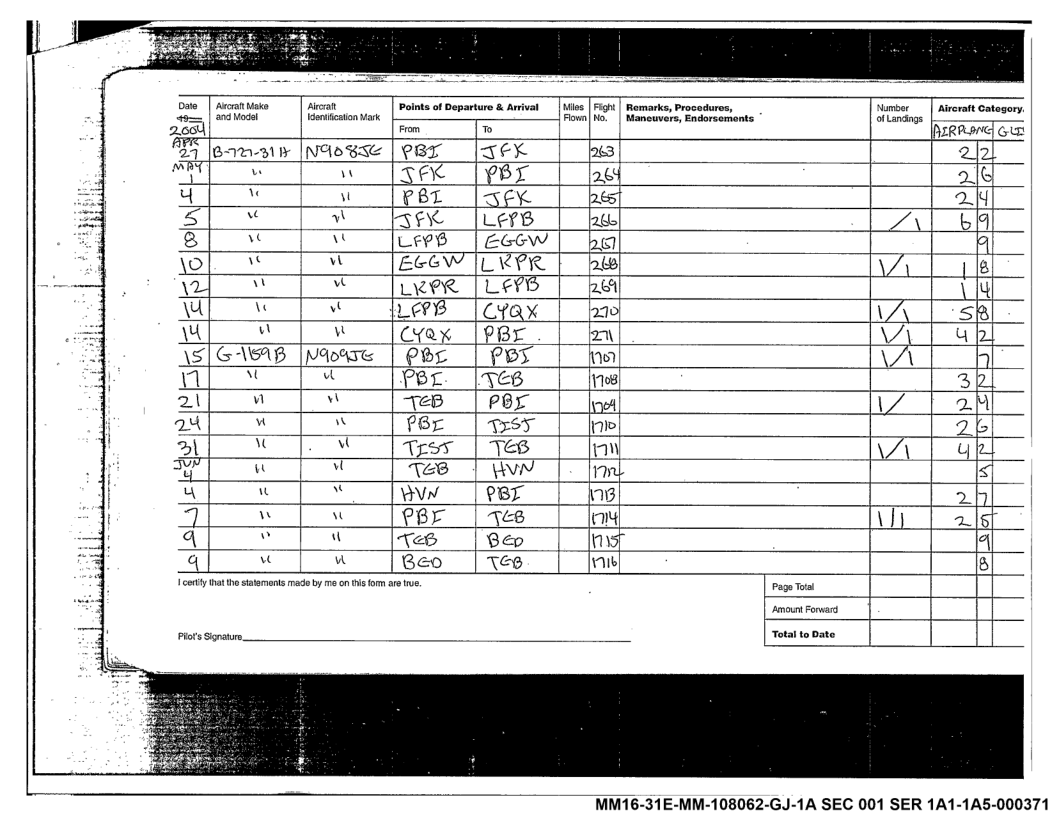 Date Aircraft Make and Model Aircraft Identification Mark Points of Departure & Arrival Miles Flown Flight No. Remarks, Procedures, Maneuvers, Endorsements Number of Landings Aircraft Category
19
2004 From To AIRPLANE GLI
APR 27 B-727-31H N908JE PBI JFK 263 2 2
MAY 1 " " JFK PBI 264 2 6
4 " " PBI JFK 265 2 4
5 " " JFK LFPB 266 / 1 6 9
8 " " LFPB EGGW 267 9
10 " " EGGW LKPR 268 1/1 1 8
12 " " LKPR LFPB 269 1 4
14 " " LFPB CYQX 270 1/1 5 8
14 " " CYQX PBI 271 1/1 4 2
15 G-1159B N909JE PBI PBI 1707 1/1 7
17 " " PBI TEB 1708 3 2
21 " " TEB PBI 1709 1/ 2 4
24 " " PBI TIST 1710 2 6
31 " " TIST TEB 1711 1/1 4 2
JUN 4 " " TEB HVN 1712 5
4 " " HVN PBI 1713 2 7
7 " " PBI TEB 1714 1/1 2 5
9 " " TEB BED 1715 9
9 " " BED TEB 1716 8
I certify that the statements made by me on this form are true.
Page Total
Amount Forward
Pilot's Signature
Total to Date
MM16-31E-MM-108062-GJ-1A SEC 001 SER 1A1-1A5-000371